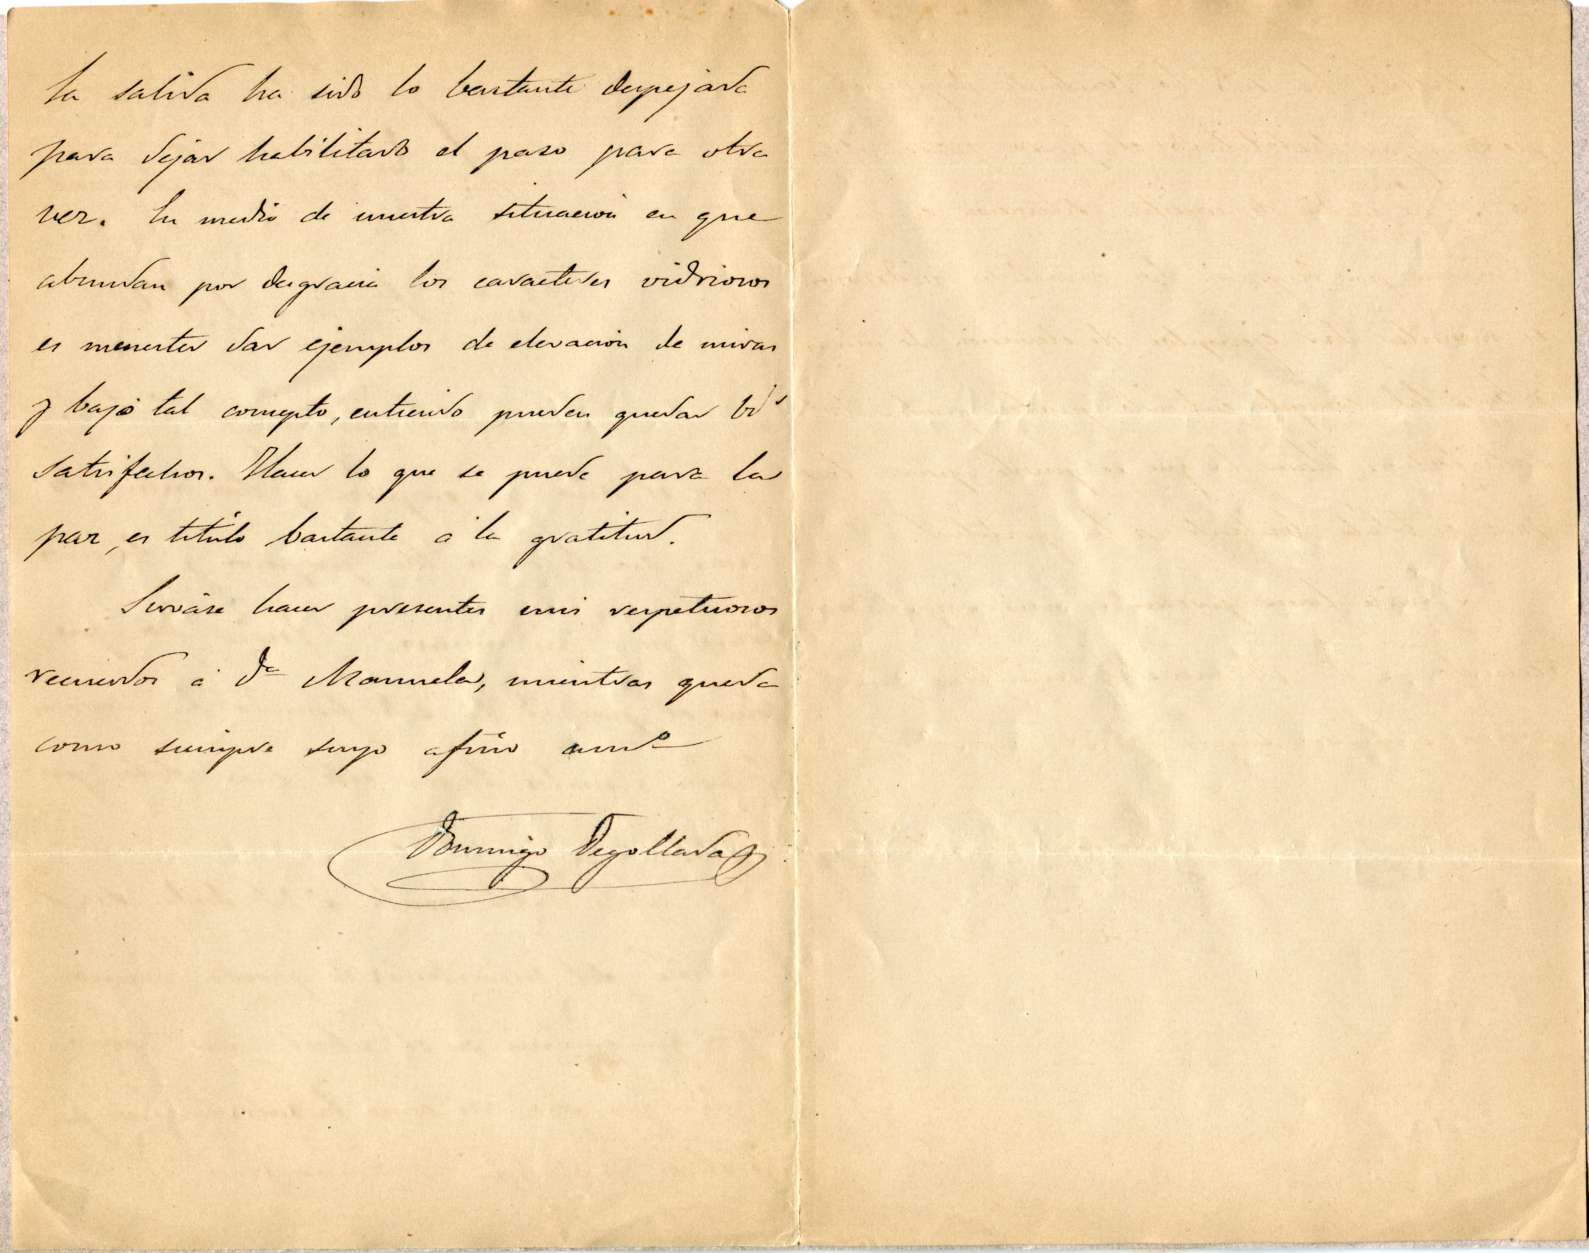 La salida ha sido lo bastante despejada
para dejar habilitado el paso para otra
vez. En medio de nuestra situación en que
abundan por desgracia los caracteres vidriosos
es menester dar ejemplos de elevación de miras
y bajo tal concepto, entiendo pueden quedar Vds
satisfechos. Hacer lo que se puede para la
paz, es título bastante á la gratitud.
Sirváse hacer presentes mis respetuosos
recuerdos á Da Manuela, mientras queda
como siempre suyo afmo amo
Domingo Degollada